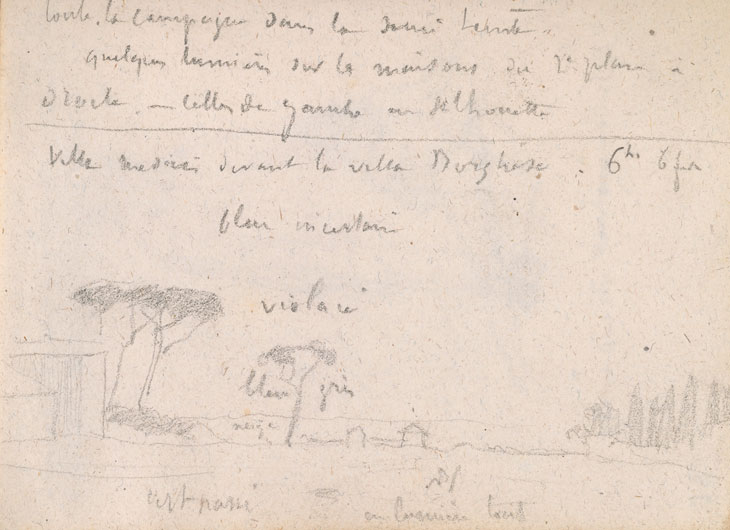 toute la campagne dans la demi teinte.
quelques lumières sur les maisons du 2e plan à
droite - celles de gauche en silhouette
Villa medicis devant la villa Borghèse. 6h 6 fev
bleu incertain
violacé
bleu gris
neige
vert
en lumière tout